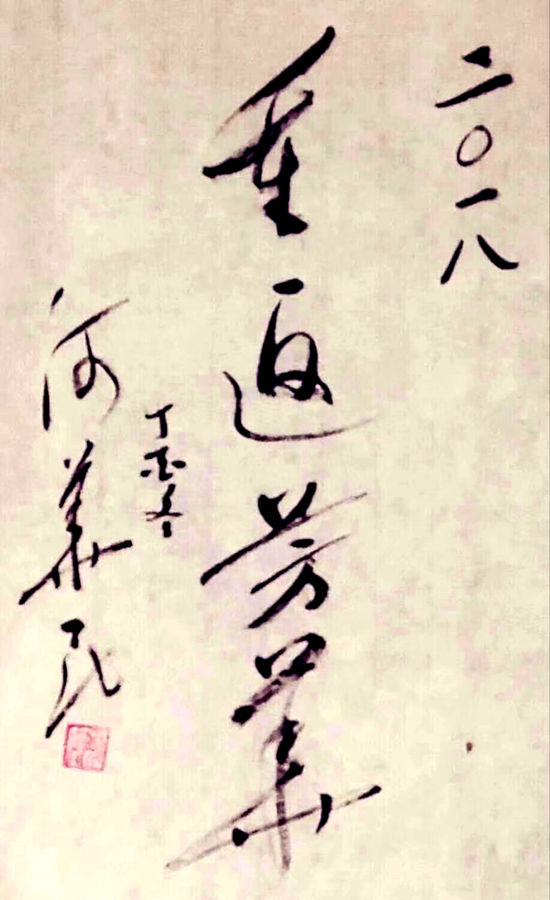 二〇一八
重返芳華
丁酉冬
何華民